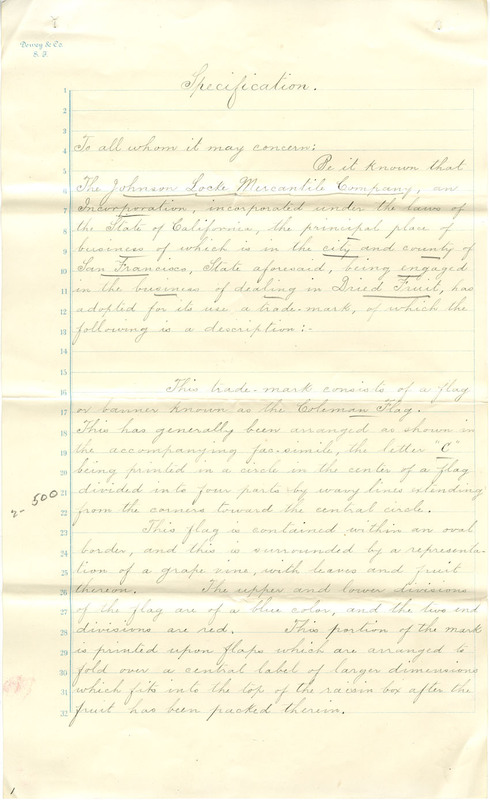 Dewey & Co
S. F.
Specification.
1
2
3
4 To all whom it may concern:
5 Be it known that
6 The Johnson Locke Mercantile Company, an
7 Incorporation, incorporated under the laws of
8 the State of California, the principal place of
9 business of which is in the city and county of
10 San Francisco, State aforesaid, being engaged
11 in the business of dealing in Dried Fruit, has
12 adopted for its use a trade-mark, of which the
13 following is a description:-
14
15
16 This trade-mark consists of a flag
17 or banner known as the Coleman Flag.
18 This has generally been arranged as shown in
19 the accompanying fac-simile, the letter "C"
20 being printed in a circle in the center of a flag
21 divided into four parts by wavy lines extending
22 from the corners toward the central circle.
2-500
23 This flag is contained within an oval
24 border, and this is surrounded by a representa-
25 tion of a grape vine, with leaves and fruit
26 thereon. The upper and lower divisions
27 of the flag are of a blue color, and the two end
28 divisions are red. This portion of the mark
29 is printed upon flaps which are arranged to
30 fold over a central label of larger dimensions
31 which fits into the top of the raisin box after the
32 fruit has been packed therein.